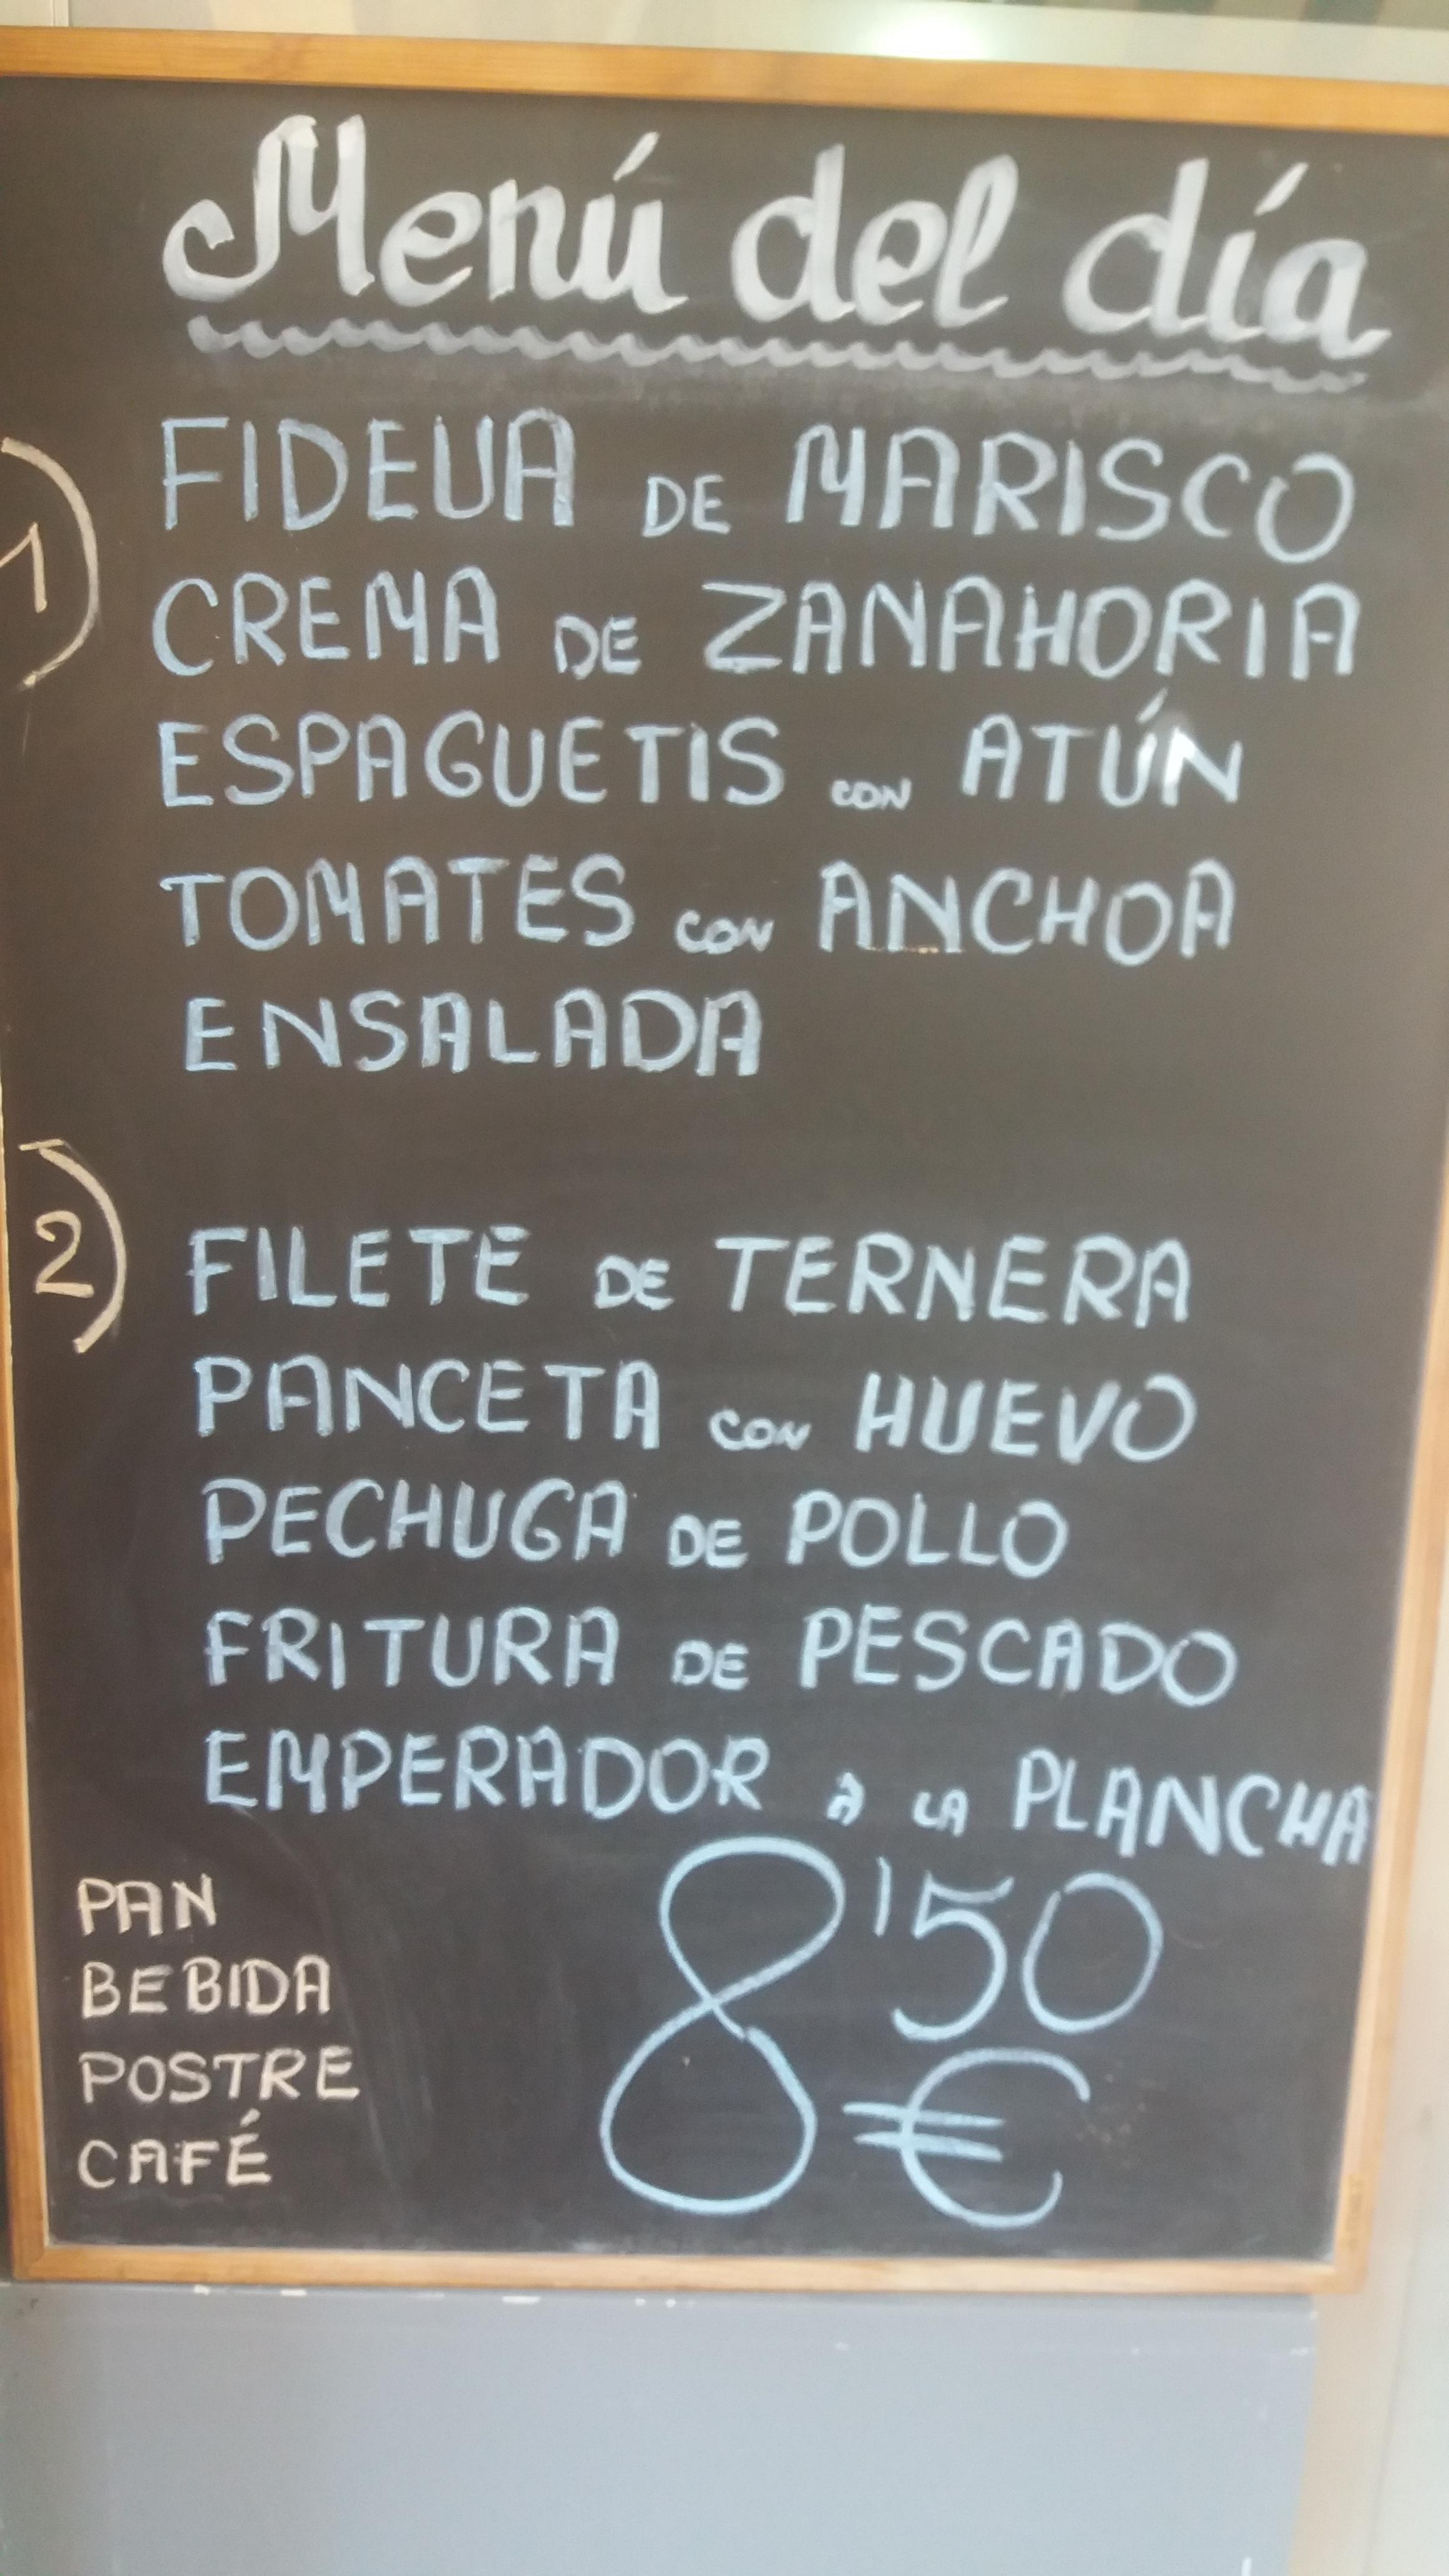 Menú del día
1) FIDEUA DE MARISCO
CREMA DE ZANAHORIA
ESPAGUETIS CON ATÚN
TOMATES CON ANCHOA
ENSALADA
2) FILETE DE TERNERA
PANCETA CON HUEVO
PECHUGA DE POLLO
FRITURA DE PESCADO
EMPERADOR A LA PLANCHA
PAN
BEBIDA
POSTRE
CAFÉ
8'50
€